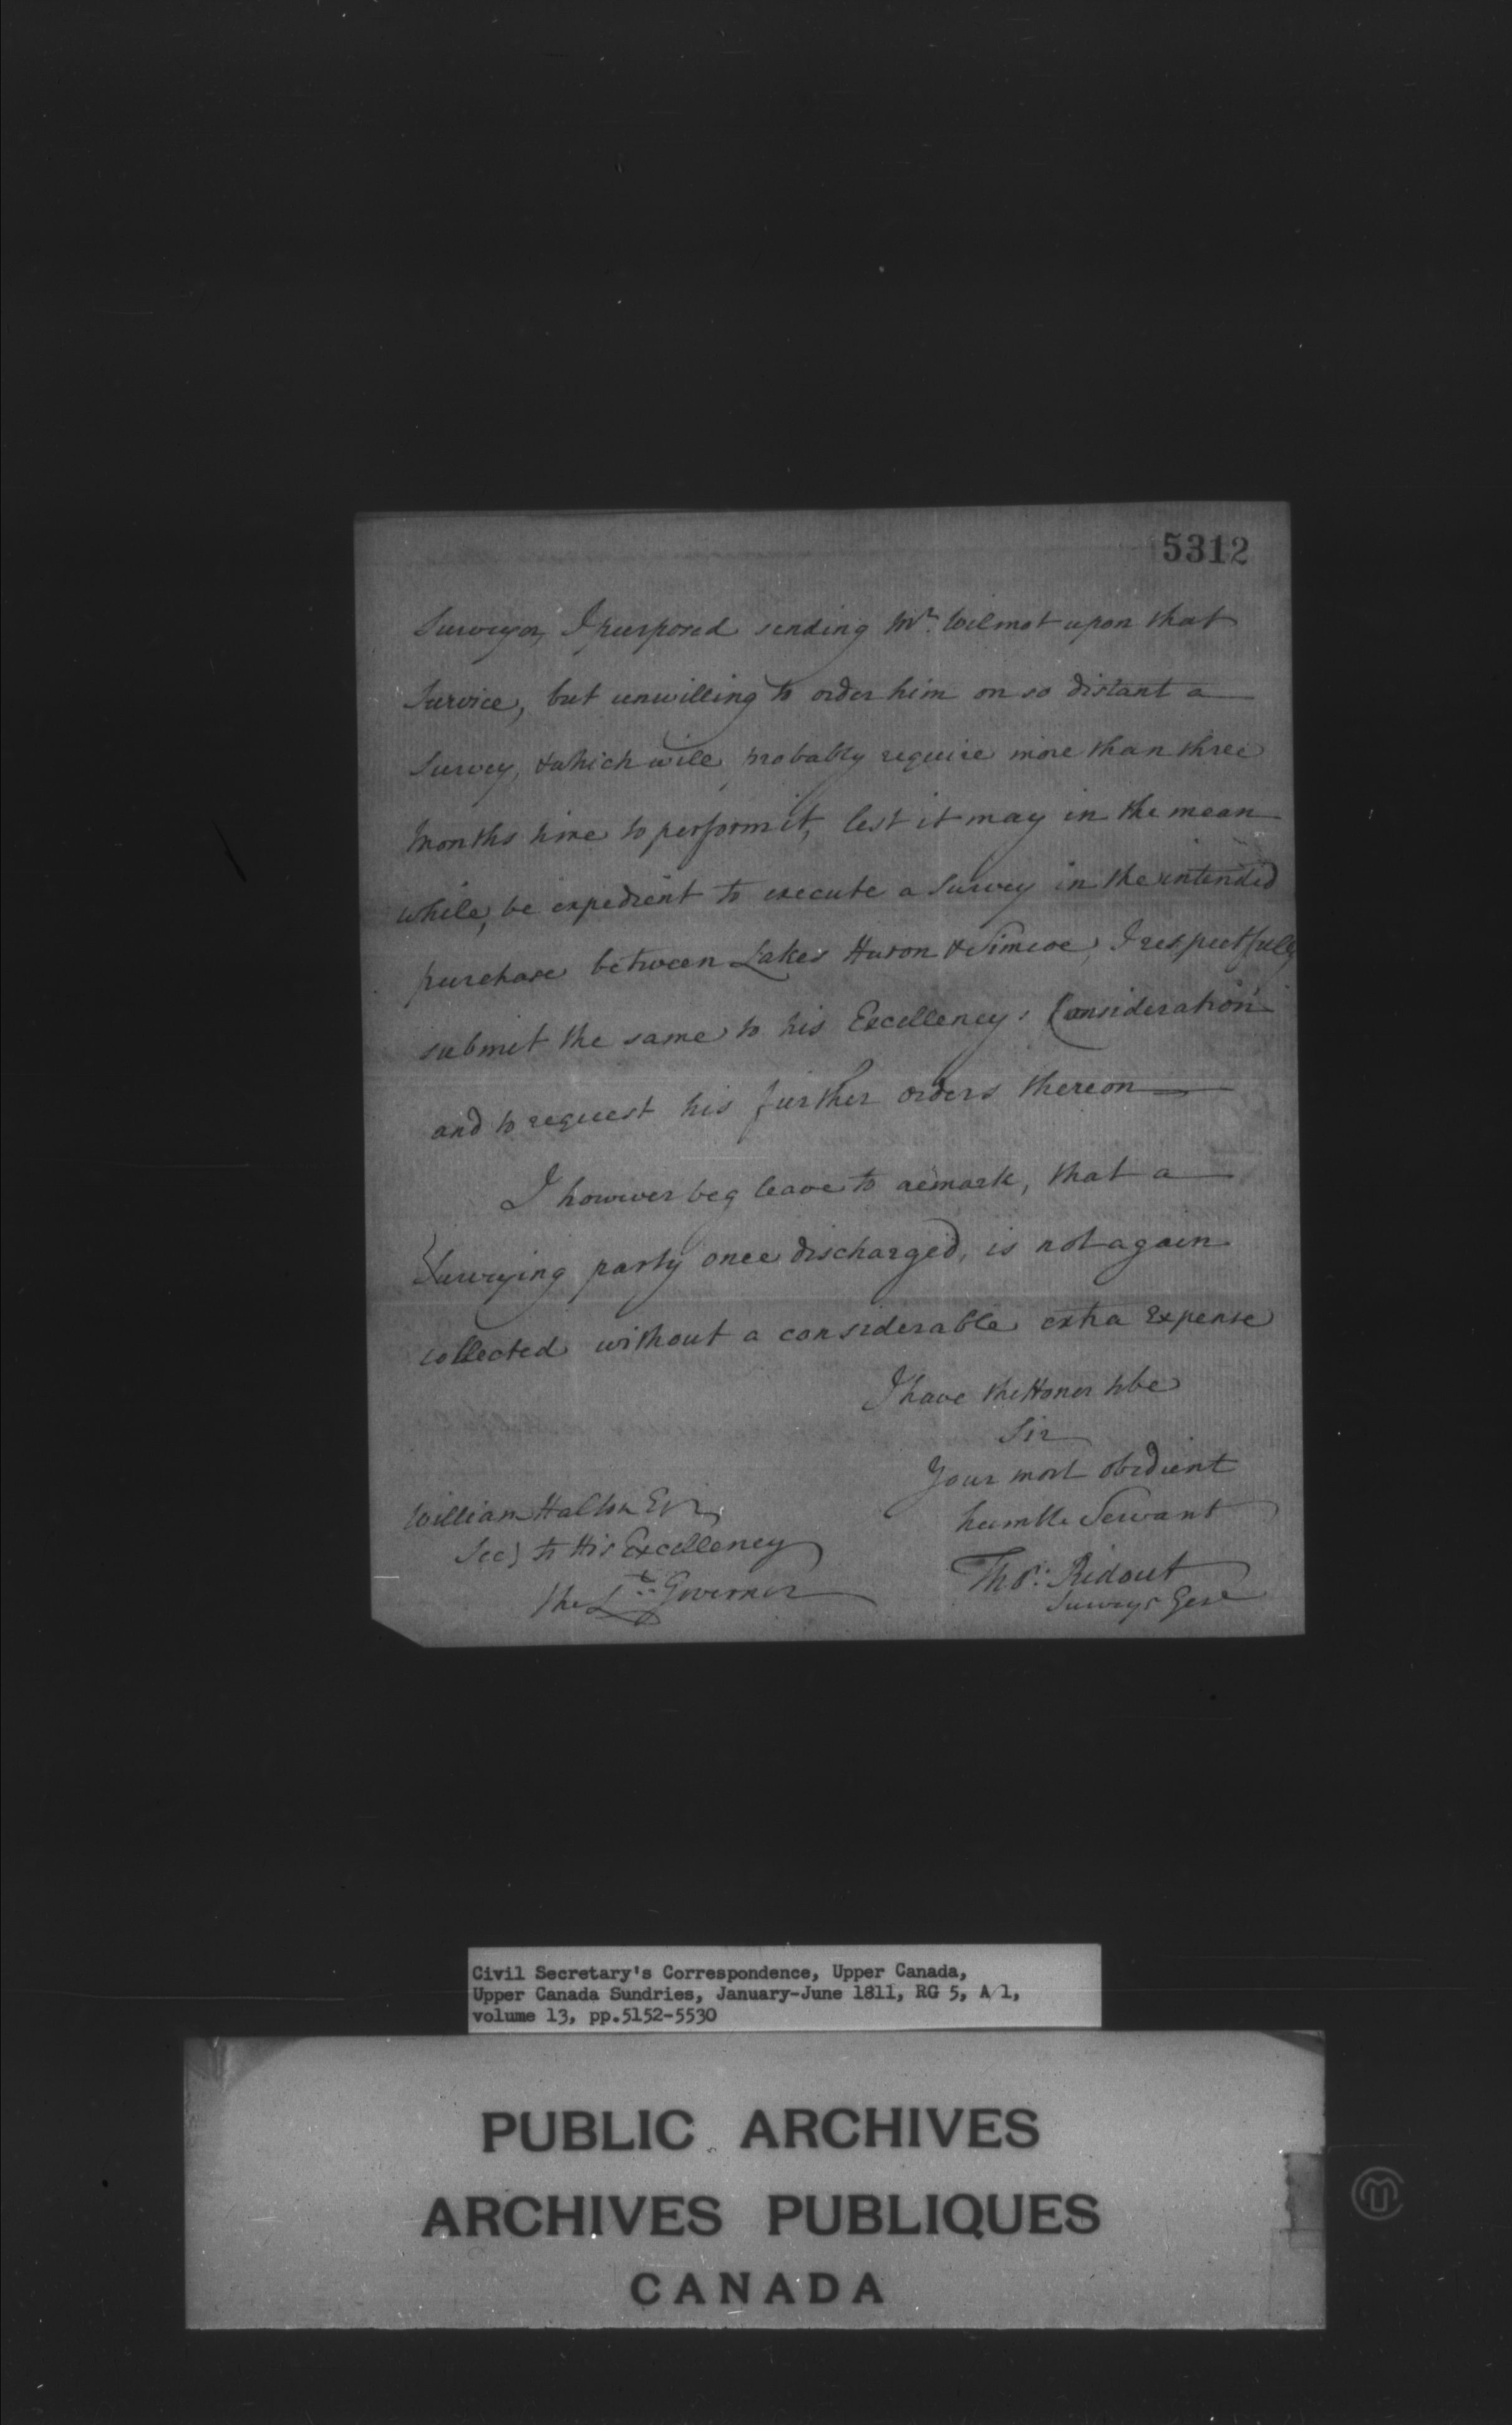 5312
Surveyor, I purposed sending Mr. Wilmot upon that
Service, but unwilling to order him on so distant a
Survey, & which will probably require more than three
Months time to perform it, lest it may in the mean
while, be expedient to execute a Survey in the intended
purchase between Lakes Huron & Simcoe, I respectfully
submit the same to his Excellency's Consideration
and to request his further orders thereon
I however beg leave to remark, that a
Surveying party once discharged, is not again
collected without a considerable extra Expense
I have the Honor to be
Sir
Your most obedient
humble Servant
Thos. Ridout
Surveyr Genl
William Halton Esqr
Secy to His Excellency
the Lt. Governor
Civil Secretary's Correspondence, Upper Canada,
Upper Canada Sundries, January-June 1811, RG 5, A 1,
volume 13, pp.5152-5530
PUBLIC ARCHIVES
ARCHIVES PUBLIQUES
CANADA